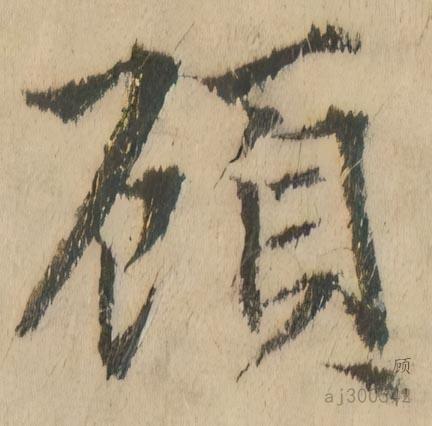 顧
顾
aj300342